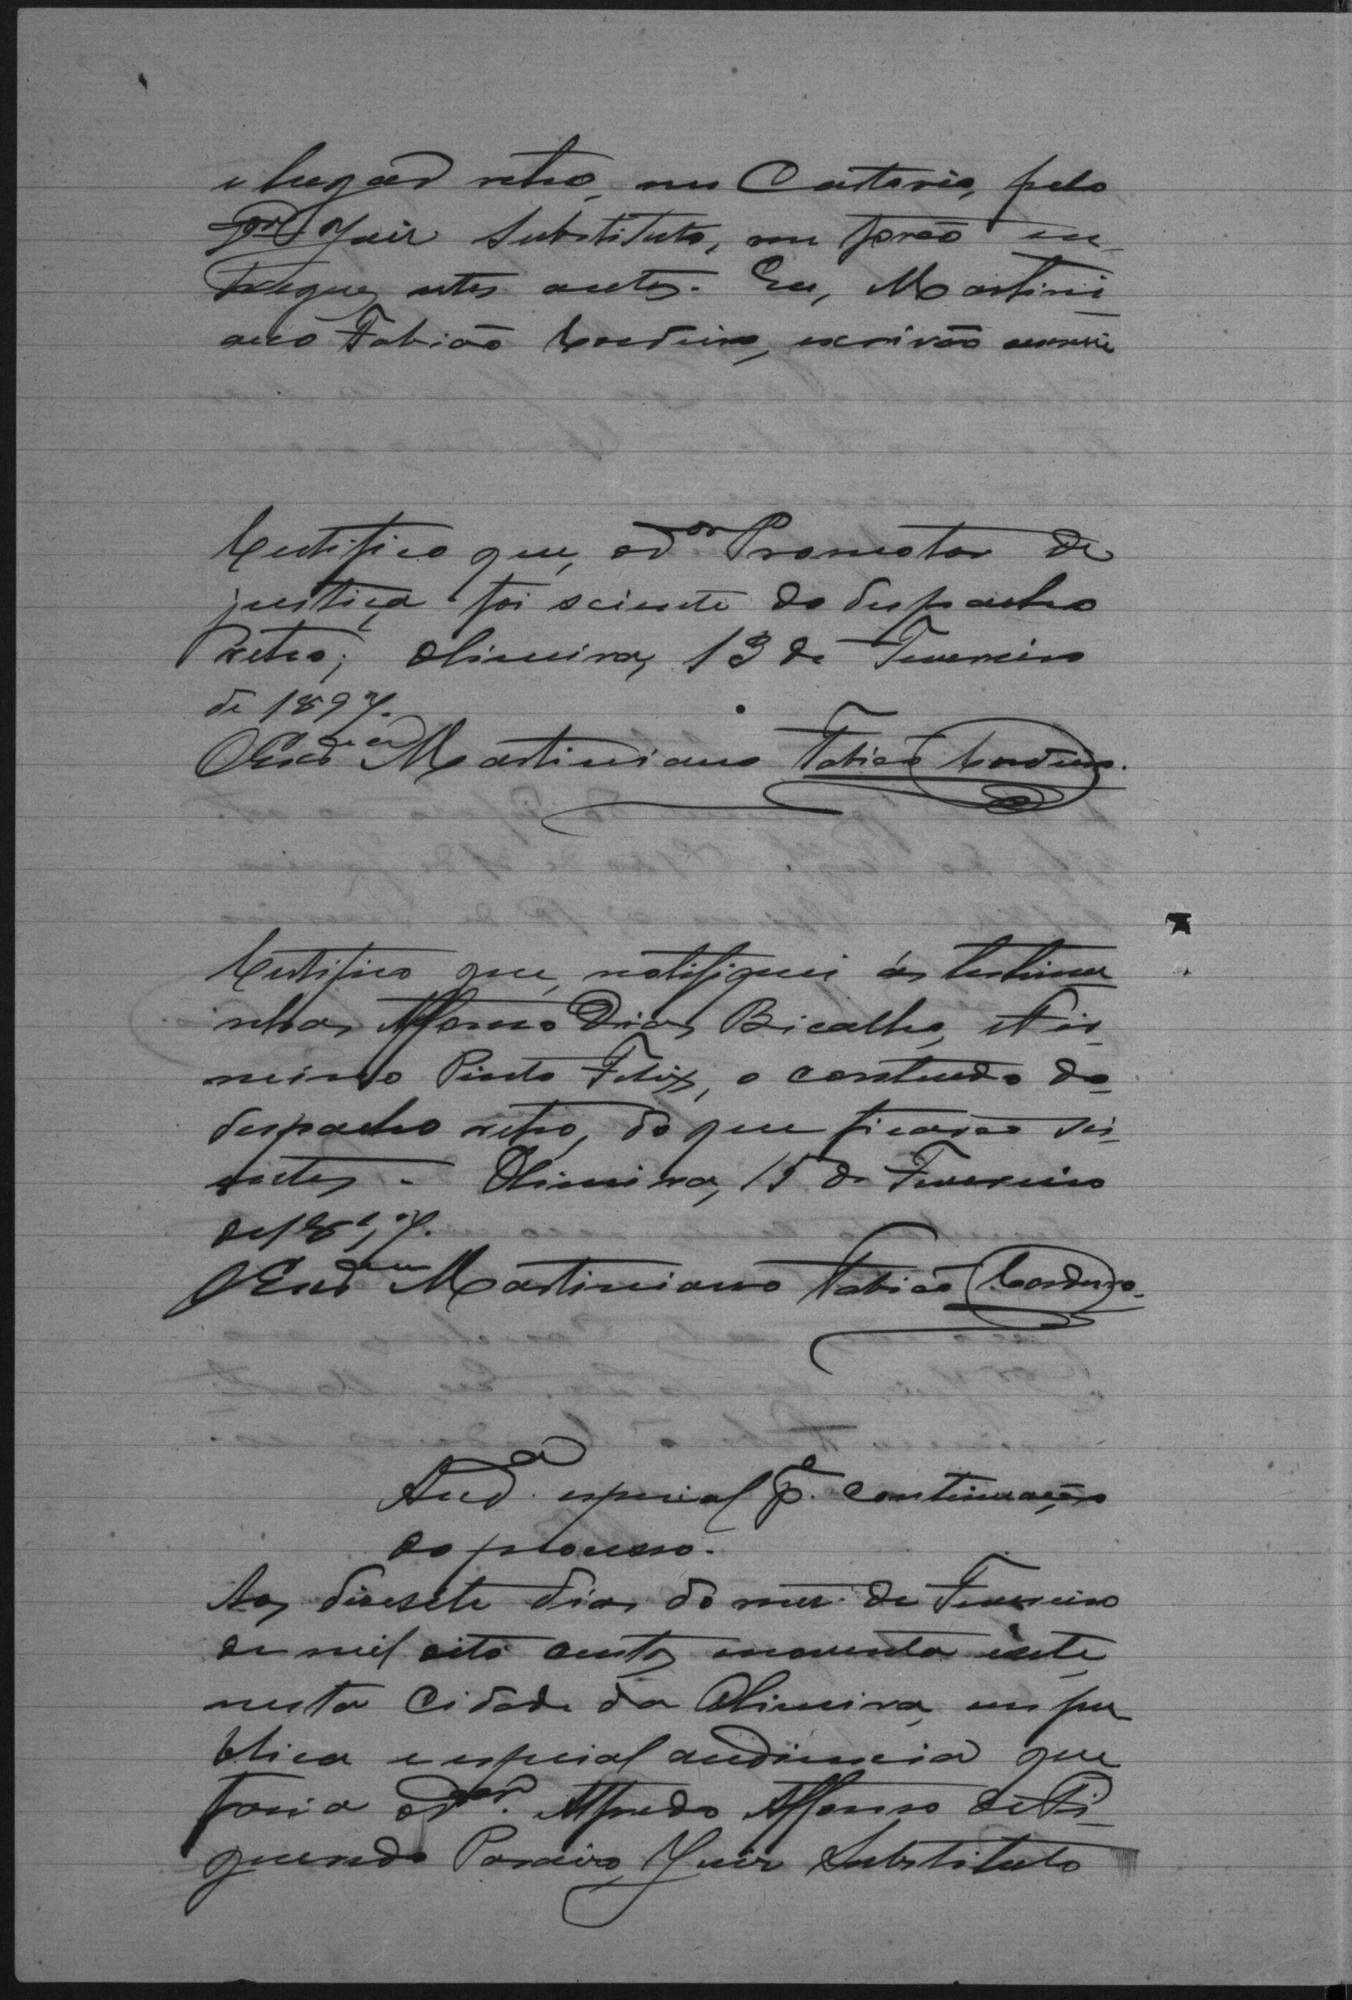 e lugar retro, em Cartorio, pelo
Dor Juiz Substituto, me forão en-
tregues estes autos. Eu, Martini
ano Fabião Cordeiro, escrivão escrevi
Certifico que, o dor Promotor de
justiça foi sciente do despacho
retro; Oliveira, 13 de Fevereiro
de 1897.
O Escram Martiniano Fabião Cordeiro.
Certifico que, notifiquei ás testimu
nhas Affonso Dias Bicalho, e Fir-
mino Pinto Felix, o contendo do
despacho retro, do que ficarão sci-
entes. Oliveira, 15 de Fevereiro
de 1897.
O Escram Martiniano Fabião Cordeiro.
Auda especial pa continuação
do processo.
Aos desesete dias do mez de Fevereiro
de mil oito centos enoventa esete,
nesta Cidade da Oliveira, em pu-
blica e especial audiencia que
fasia o dor Alfredo Affonso de Fi-
gueredo Juiz Substituto